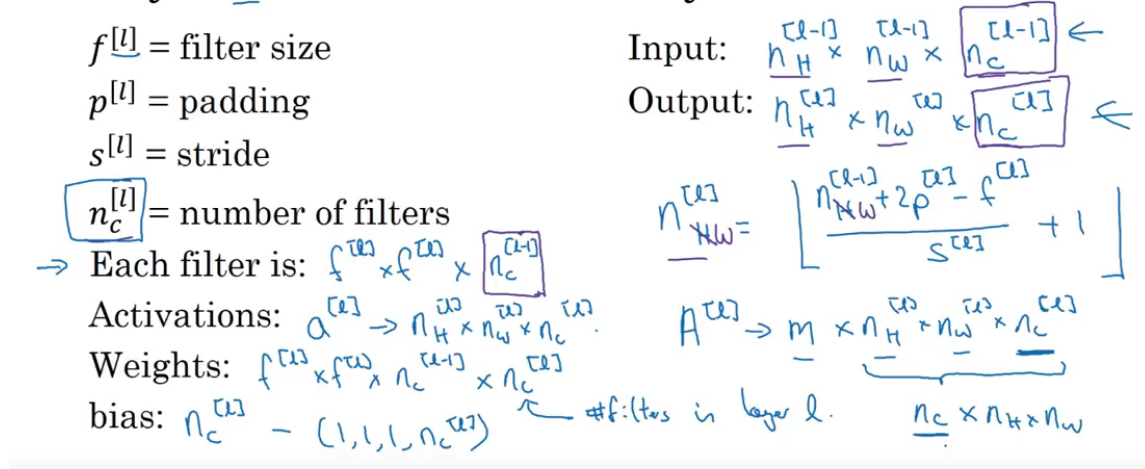 f^[l] = filter size
p^[l] = padding
s^[l] = stride
n_c^[l] = number of filters
→ Each filter is: f^[l] × f^[l] × n_c^[l-1]
Activations: a^[l] → n_H^[l] × n_W^[l] × n_c^[l].
Weights: f^[l] × f^[l] × n_c^[l-1] × n_c^[l]
bias: n_c^[l] - (1,1,1,n_c^[l])
← #filters in layer l.
Input: n_H^[l-1] × n_W^[l-1] × n_c^[l-1] ←
Output: n_H^[l] × n_W^[l] × n_c^[l] ←
n_W^[l] = ⌊ (n_W^[l-1] + 2p^[l] - f^[l]) / s^[l] + 1 ⌋
A^[l] → m × n_H^[l] × n_W^[l] × n_c^[l]
n_c × n_H × n_W